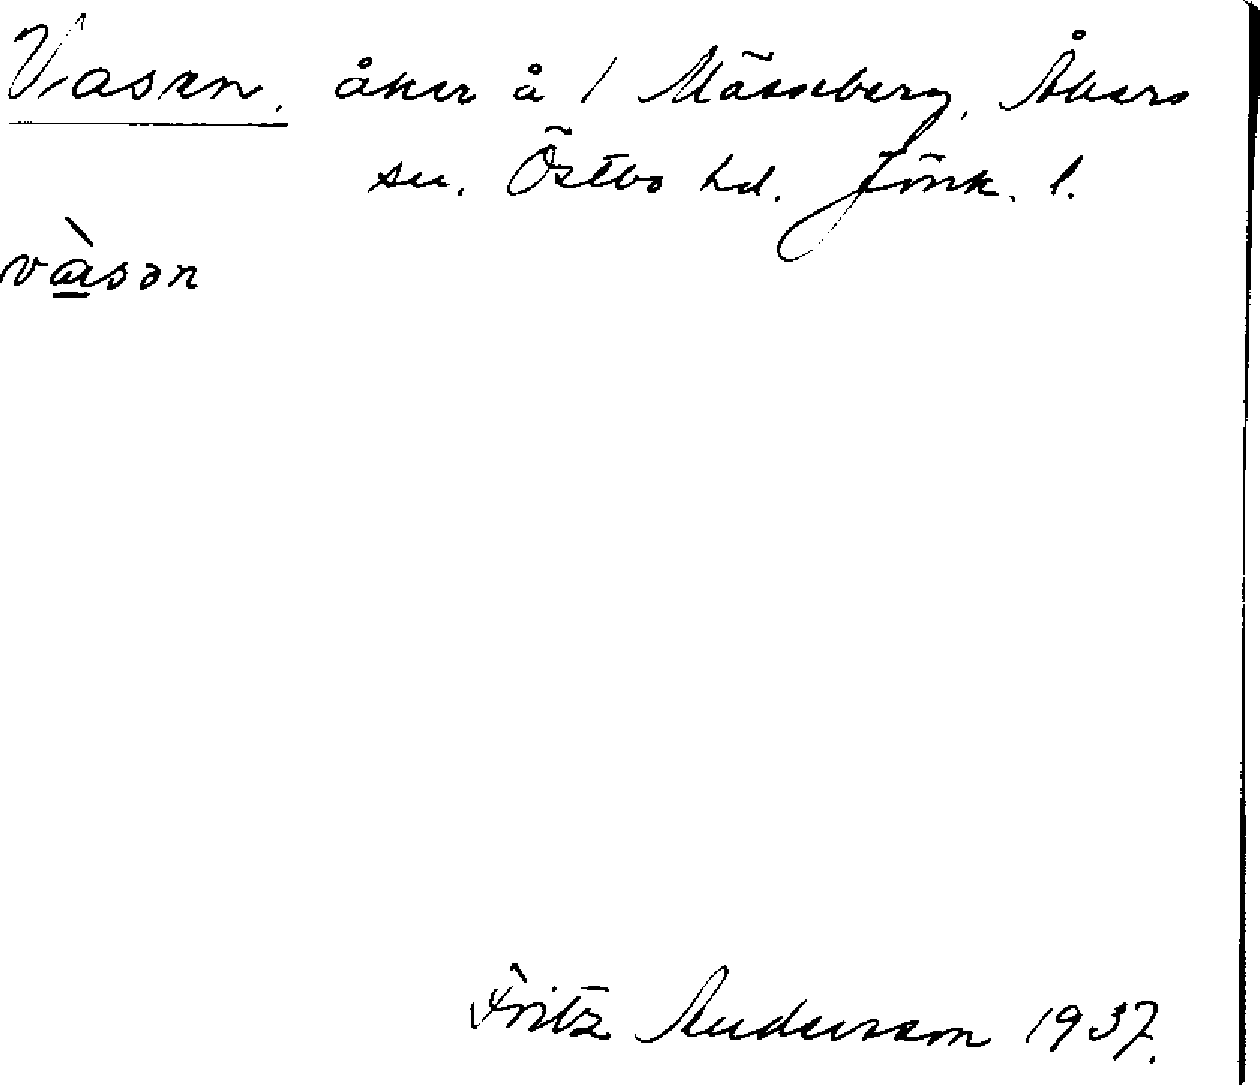 Vasen. åker å 1 Mässeberg, Åkers
sn. Östbo hd. Jönk. l.
vàsən
Fritz Andersson 1937.